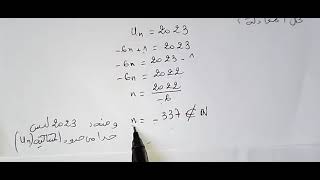 Un = 2023
-6n + 1 = 2023
-6n = 2023 - 1
-6n = 2022
n = 2022 / -6
n = -337 ∉ ℕ
ومنه 2023 ليس
حدا من حدود المتتالية (Un)